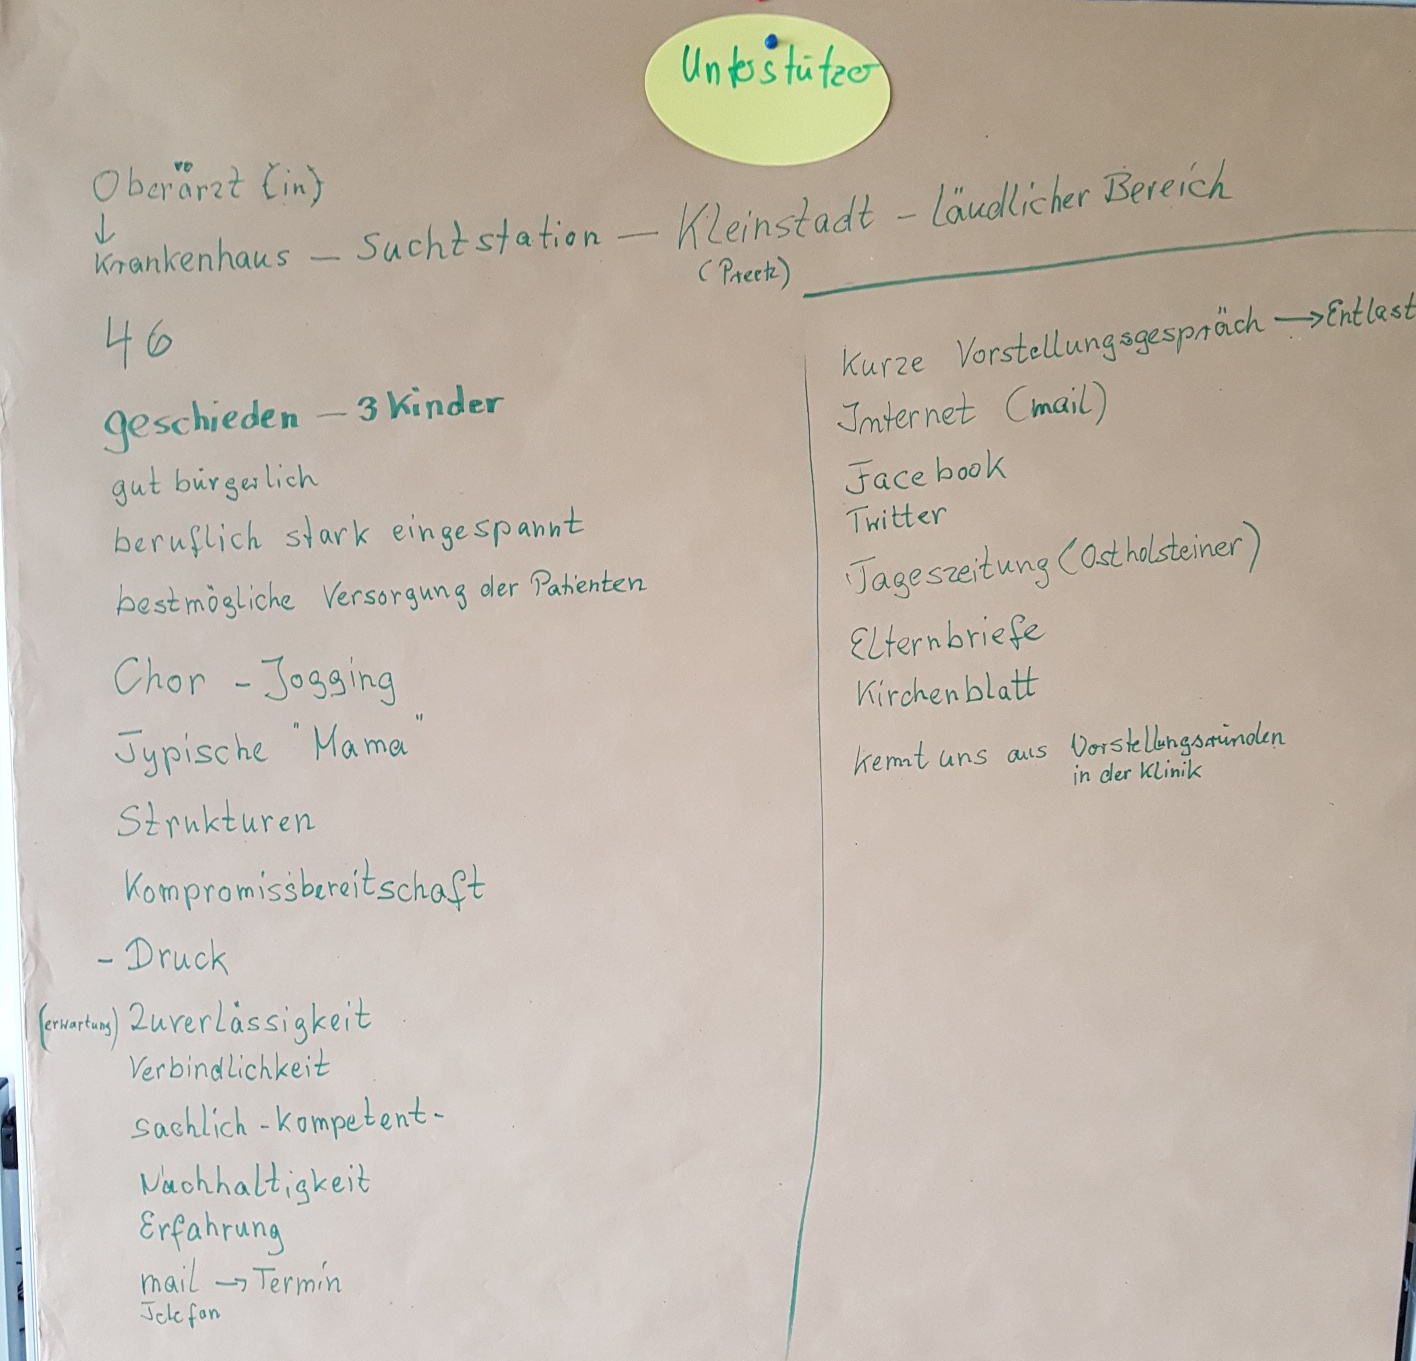 Unterstützer
Oberärzt (in)
↓
Krankenhaus – Suchtstation – Kleinstadt – ländlicher Bereich
(Preetz)
46
geschieden – 3 Kinder
gut bürgerlich
beruflich stark eingespannt
bestmögliche Versorgung der Patienten
Chor – Jogging
Typische "Mama"
Strukturen
Kompromissbereitschaft
- Druck
(erwartung) Zuverlässigkeit
Verbindlichkeit
sachlich - kompetent -
Nachhaltigkeit
Erfahrung
mail → Termin
Telefon
Kurze Vorstellungsgespräch → Entlast
Internet (mail)
Facebook
Twitter
Tageszeitung (Ostholsteiner)
Elternbriefe
Kirchenblatt
kennt uns aus Vorstellungsrunden
in der Klinik